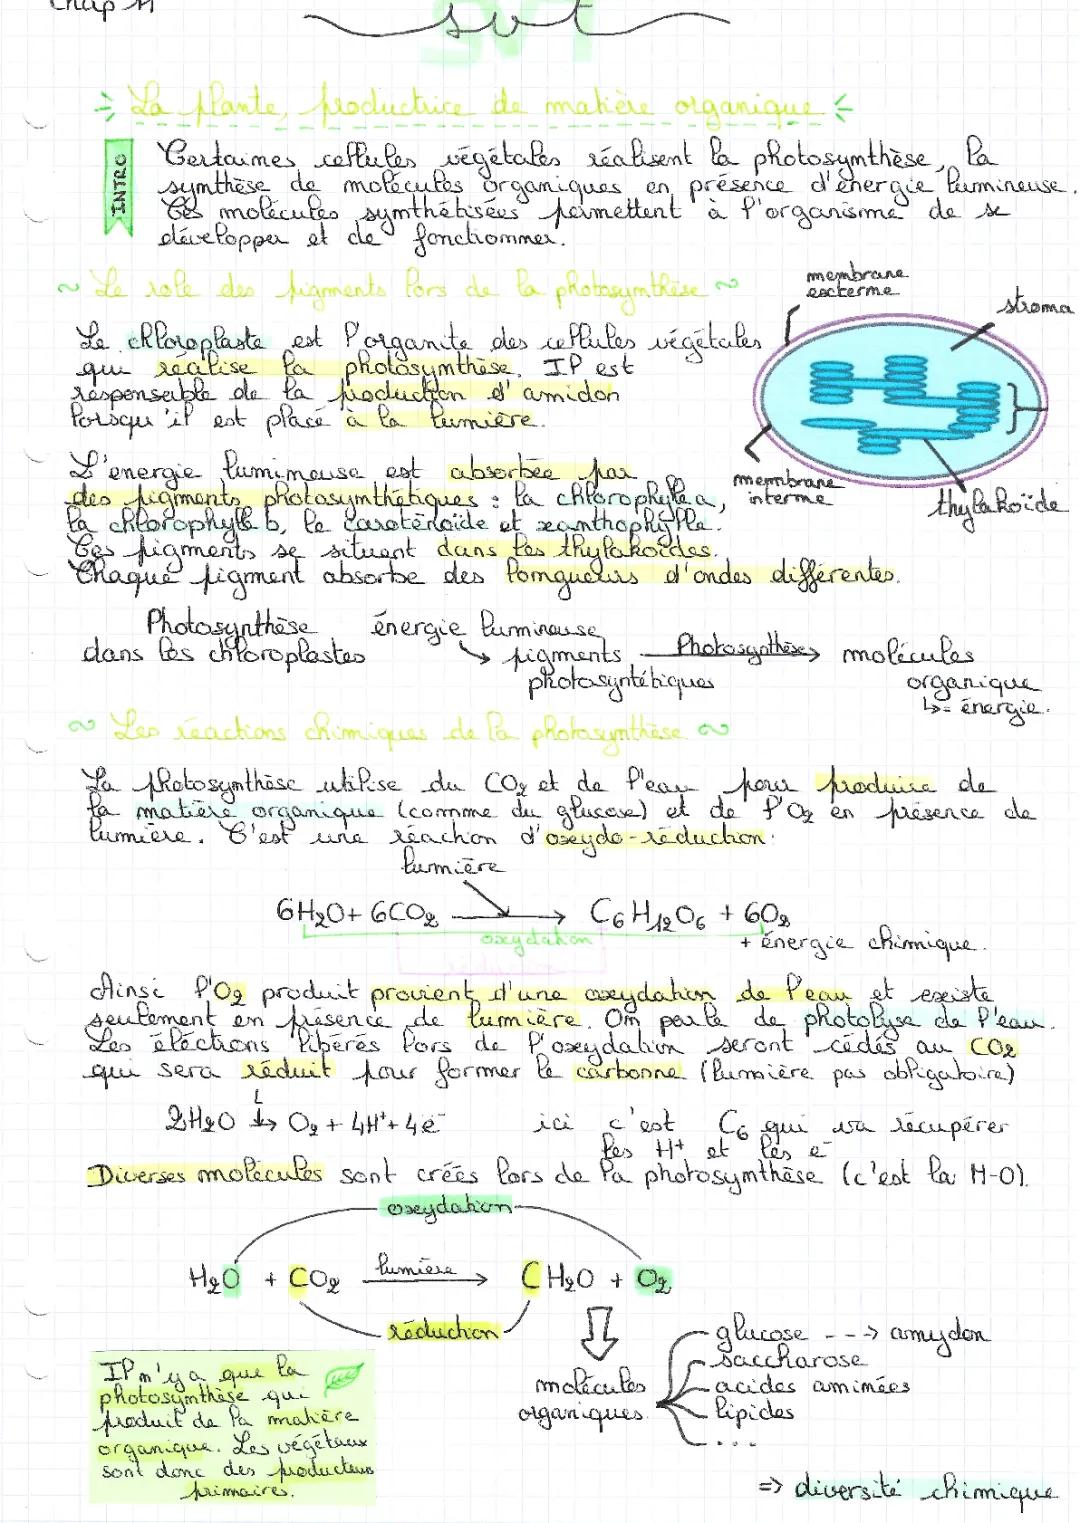 Chap 11
svt
La plante, productrice de matière organique
INTRO
Certaines cellules végétales réalisent la photosynthèse, la
synthèse de molécules organiques en présence d'énergie lumineuse.
Ces molécules synthétisées permettent à l'organisme de se
développer et de fonctionner.
~ Le role des pigments lors de la photosynthèse ~
membrane
externe
stroma
Le chloroplaste est l'organite des cellules végétales
qui réalise la photosynthèse. Il est
responsable de la production d'amidon
lorsqu'il est placé à la lumière.
membrane
interne
thylakoïde
L'énergie lumineuse est absorbée par
des pigments photosynthétiques : la chlorophylle a,
la chlorophylle b, le caroténoïde et xanthophylle.
Ces pigments se situent dans les thylakoïdes.
Chaque pigment absorbe des longueurs d'ondes différentes.
Photosynthèse énergie lumineuse
dans les chloroplastes ↳ pigments Photosynthèse → molécules
photosyntétiques organique
↳= énergie.
~ Les réactions chimiques de la photosynthèse ~
La photosynthèse utilise du CO2 et de l'eau pour produire de
la matière organique (comme du glucose) et de l'O2 en présence de
lumière. C'est une réaction d'oxydo-réduction:
lumière
6H2O + 6CO2 → C6H12O6 + 6O2
oxydation + énergie chimique.
réduction
Ainsi l'O2 produit provient d'une oxydation de l'eau et existe
seulement en présence de lumière. On parle de photolyse de l'eau.
Les éléctrons libérés lors de l'oxydation seront cédés au CO2
qui sera réduit pour former le carbonne (lumière pas obligatoire)
L
2H2O → O2 + 4H+ + 4e- ici c'est C6 qui va récupérer
les H+ et les e-
Diverses molécules sont créés lors de la photosynthèse (c'est la M-O).
oxydation
H2O + CO2 lumière → CH2O + O2
réduction
glucose - - -> amydon
saccharose
molécules acides aminées
organiques lipides
...
Il n'y a que la
photosynthèse qui
produit de la matière
organique. Les végétaux
sont donc des producteurs
primaires.
=> diversité chimique